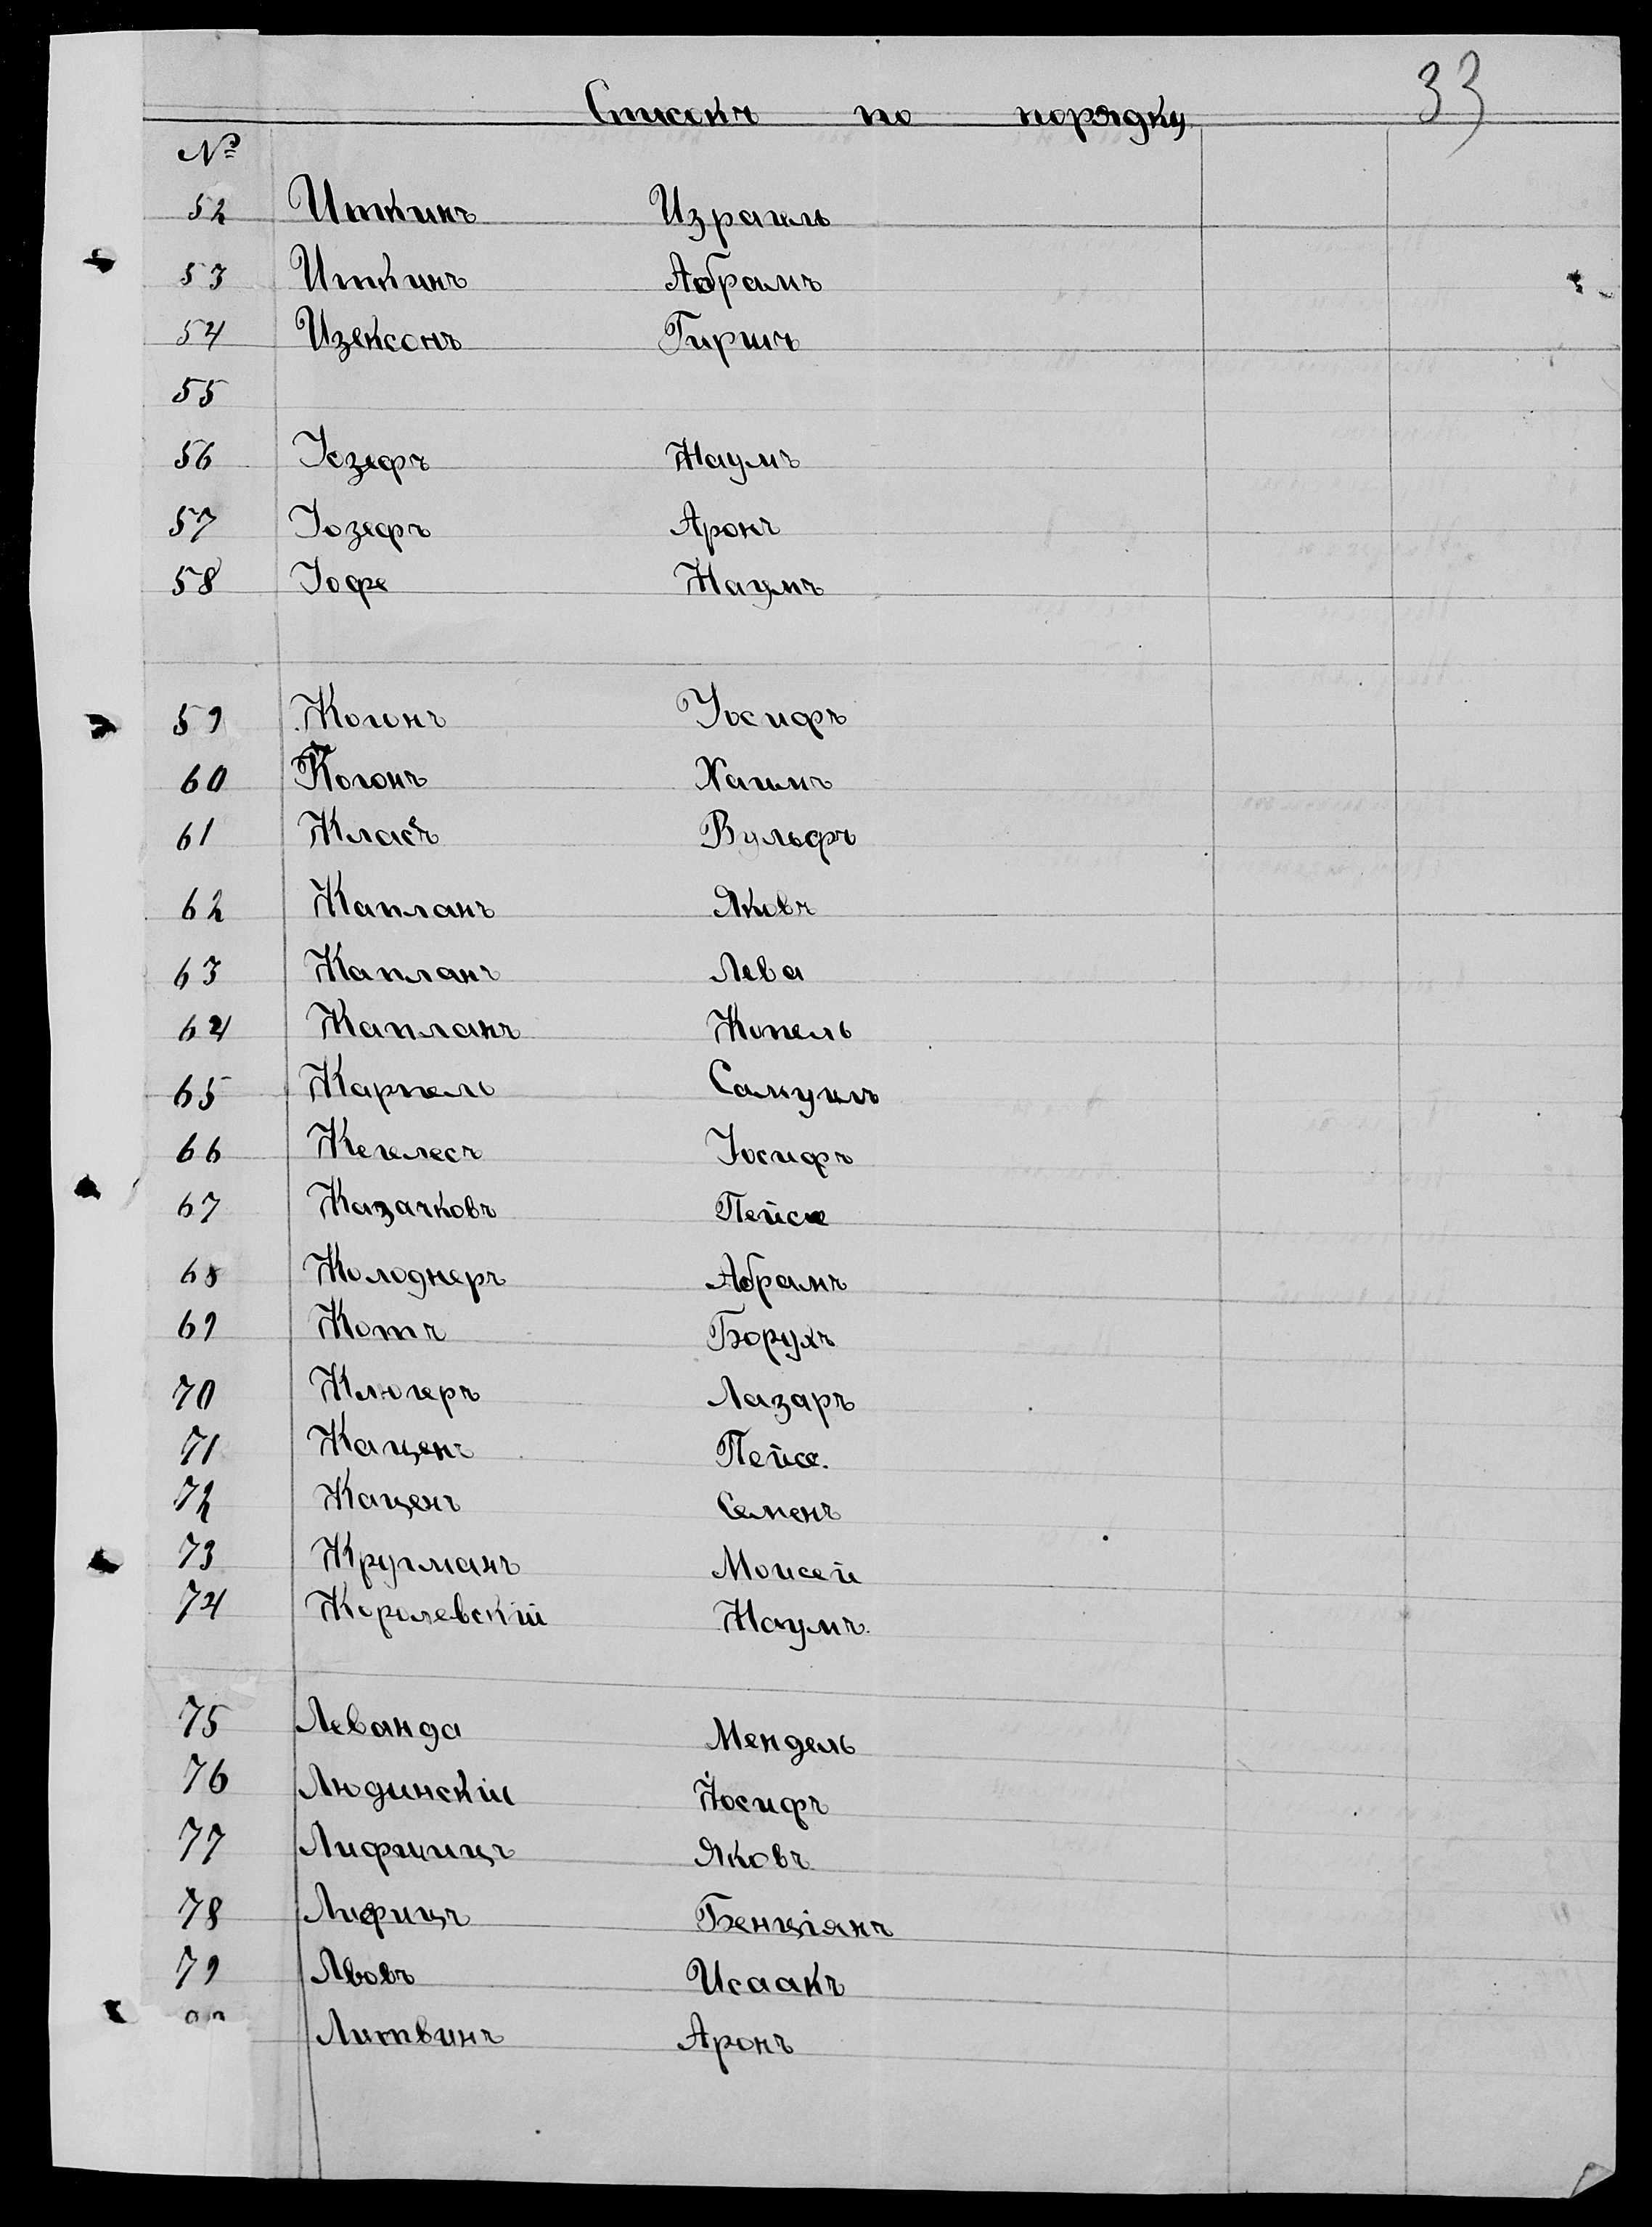 33
Списокъ по порядку
№
52 Иткинъ Израиль
53 Иткинъ Абрамъ
54 Изексонъ Гиршъ
55
56 Іозефъ Наумъ
57 Іозефъ Аронъ
58 Іофе Наумъ
59 Когонъ Іосифъ
60 Когонъ Хаимъ
61 Класъ Вульфъ
62 Капланъ Яковъ
63 Капланъ Лева
64 Капланъ Копель
65 Карпель Самуилъ
66 Кегелесъ Іосифъ
67 Казачковъ Пейсе
68 Колоднеръ Абрамъ
69 Котъ Борухъ
70 Клюгеръ Лазаръ
71 Каценъ Пейсе.
72 Каценъ Семенъ
73 Кругманъ Моисей
74 Королевскій Наумъ.
75 Леванда Мендель
76 Людинскій Іосифъ
77 Лифшицъ Яковъ
78 Лифицъ Бенціянъ
79 Львовъ Исаакъ
Литвинъ Аронъ